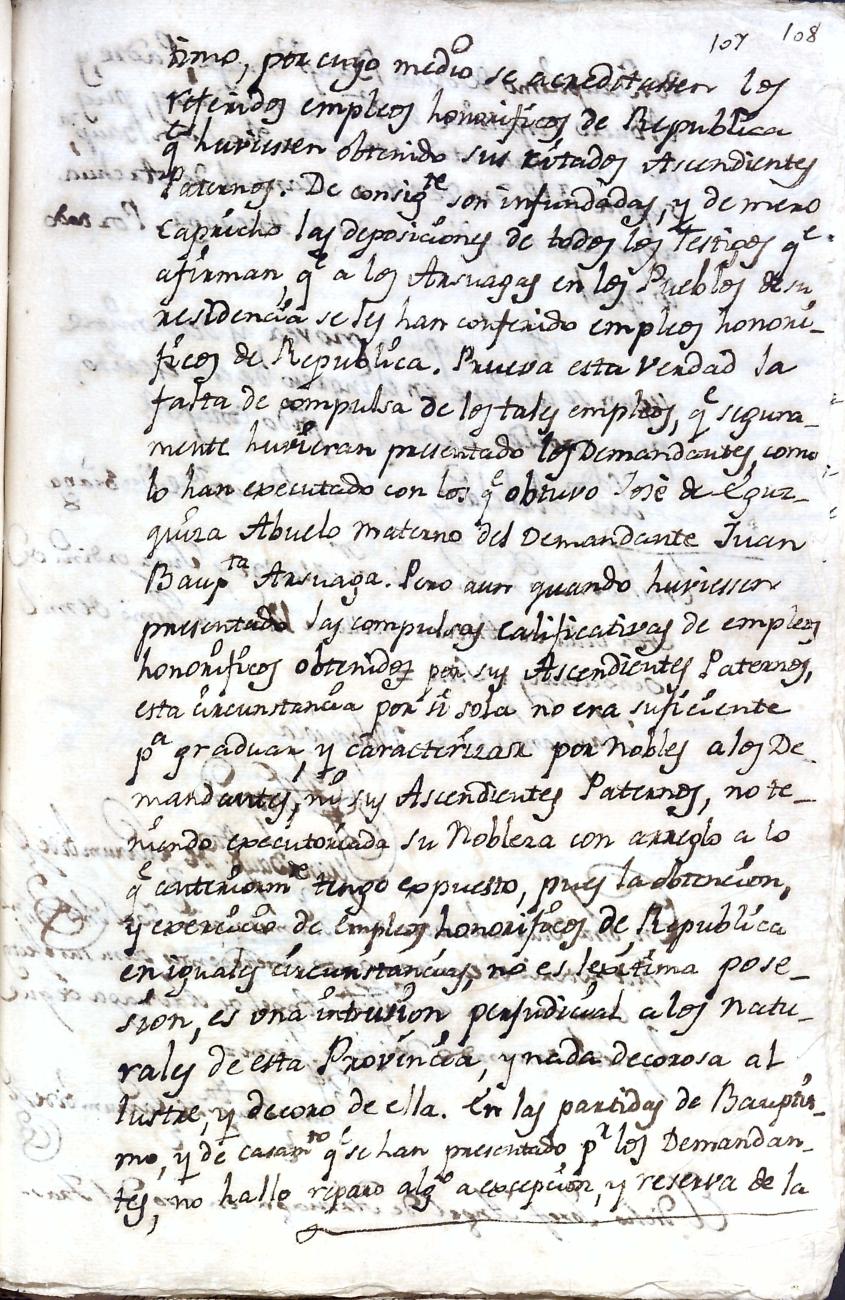 107 108
timo, por cuyo medio se acreditassen los
referidos empleos honorificos de Republica
q.e huviessen obtenido sus citados Ascendientes
Paternos. De consig.te son infundadas, y de mero
capricho las deposiciones de todos los Testigos q.e
afirman, q.e a los Arsuagas en los Pueblos de su
residencia se les han conferido empleos honori-
ficos de Republica. Prueva esta verdad la
falta de compulsa de los tales empleos, q.e segura-
mente huvieran presentado los Demandantes, como
lo han executado con los q.e obtuvo Josè de Eguz-
quiza Abuelo Materno del Demandante Juan
Baup.ta Arsuaga. Pero aun quando huviessen
presentado las compulsas calificativas de empleos
honorificos obtenidos por sus Ascendientes Paternos,
esta circunstancia por si sola no era suficiente
p.a graduar, y caracterizar por Nobles a los De-
mandantes, ni sus Ascendientes Paternos, no te-
niendo executoriada su Nobleza con arreglo a lo
q.e anteriorm.te tengo expuesto, pues la obtencion,
y exercicio de Empleos honorificos de Republica
en iguales circunstancias, no es lexitima pose-
sion, es una intrusion perjudicial a los Natu-
rales de esta Provincia, y nada decorosa al
lustre, y decoro de ella. En las partidas de Bauptis-
mo, y de casam.to q.e se han presentado p.r los Demandan-
tes, no hallo reparo alg.o a excepcion, y reserva de la